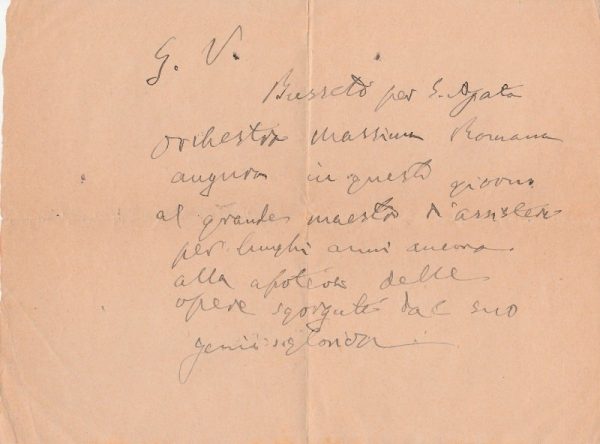 G. V.
Busseto per S. Agata
Orchestra Massima Romana
augura in questo giorno
al grande maestro d'assistere
per lunghi anni ancora
alla apoteosi delle
opere sgorgate dal suo